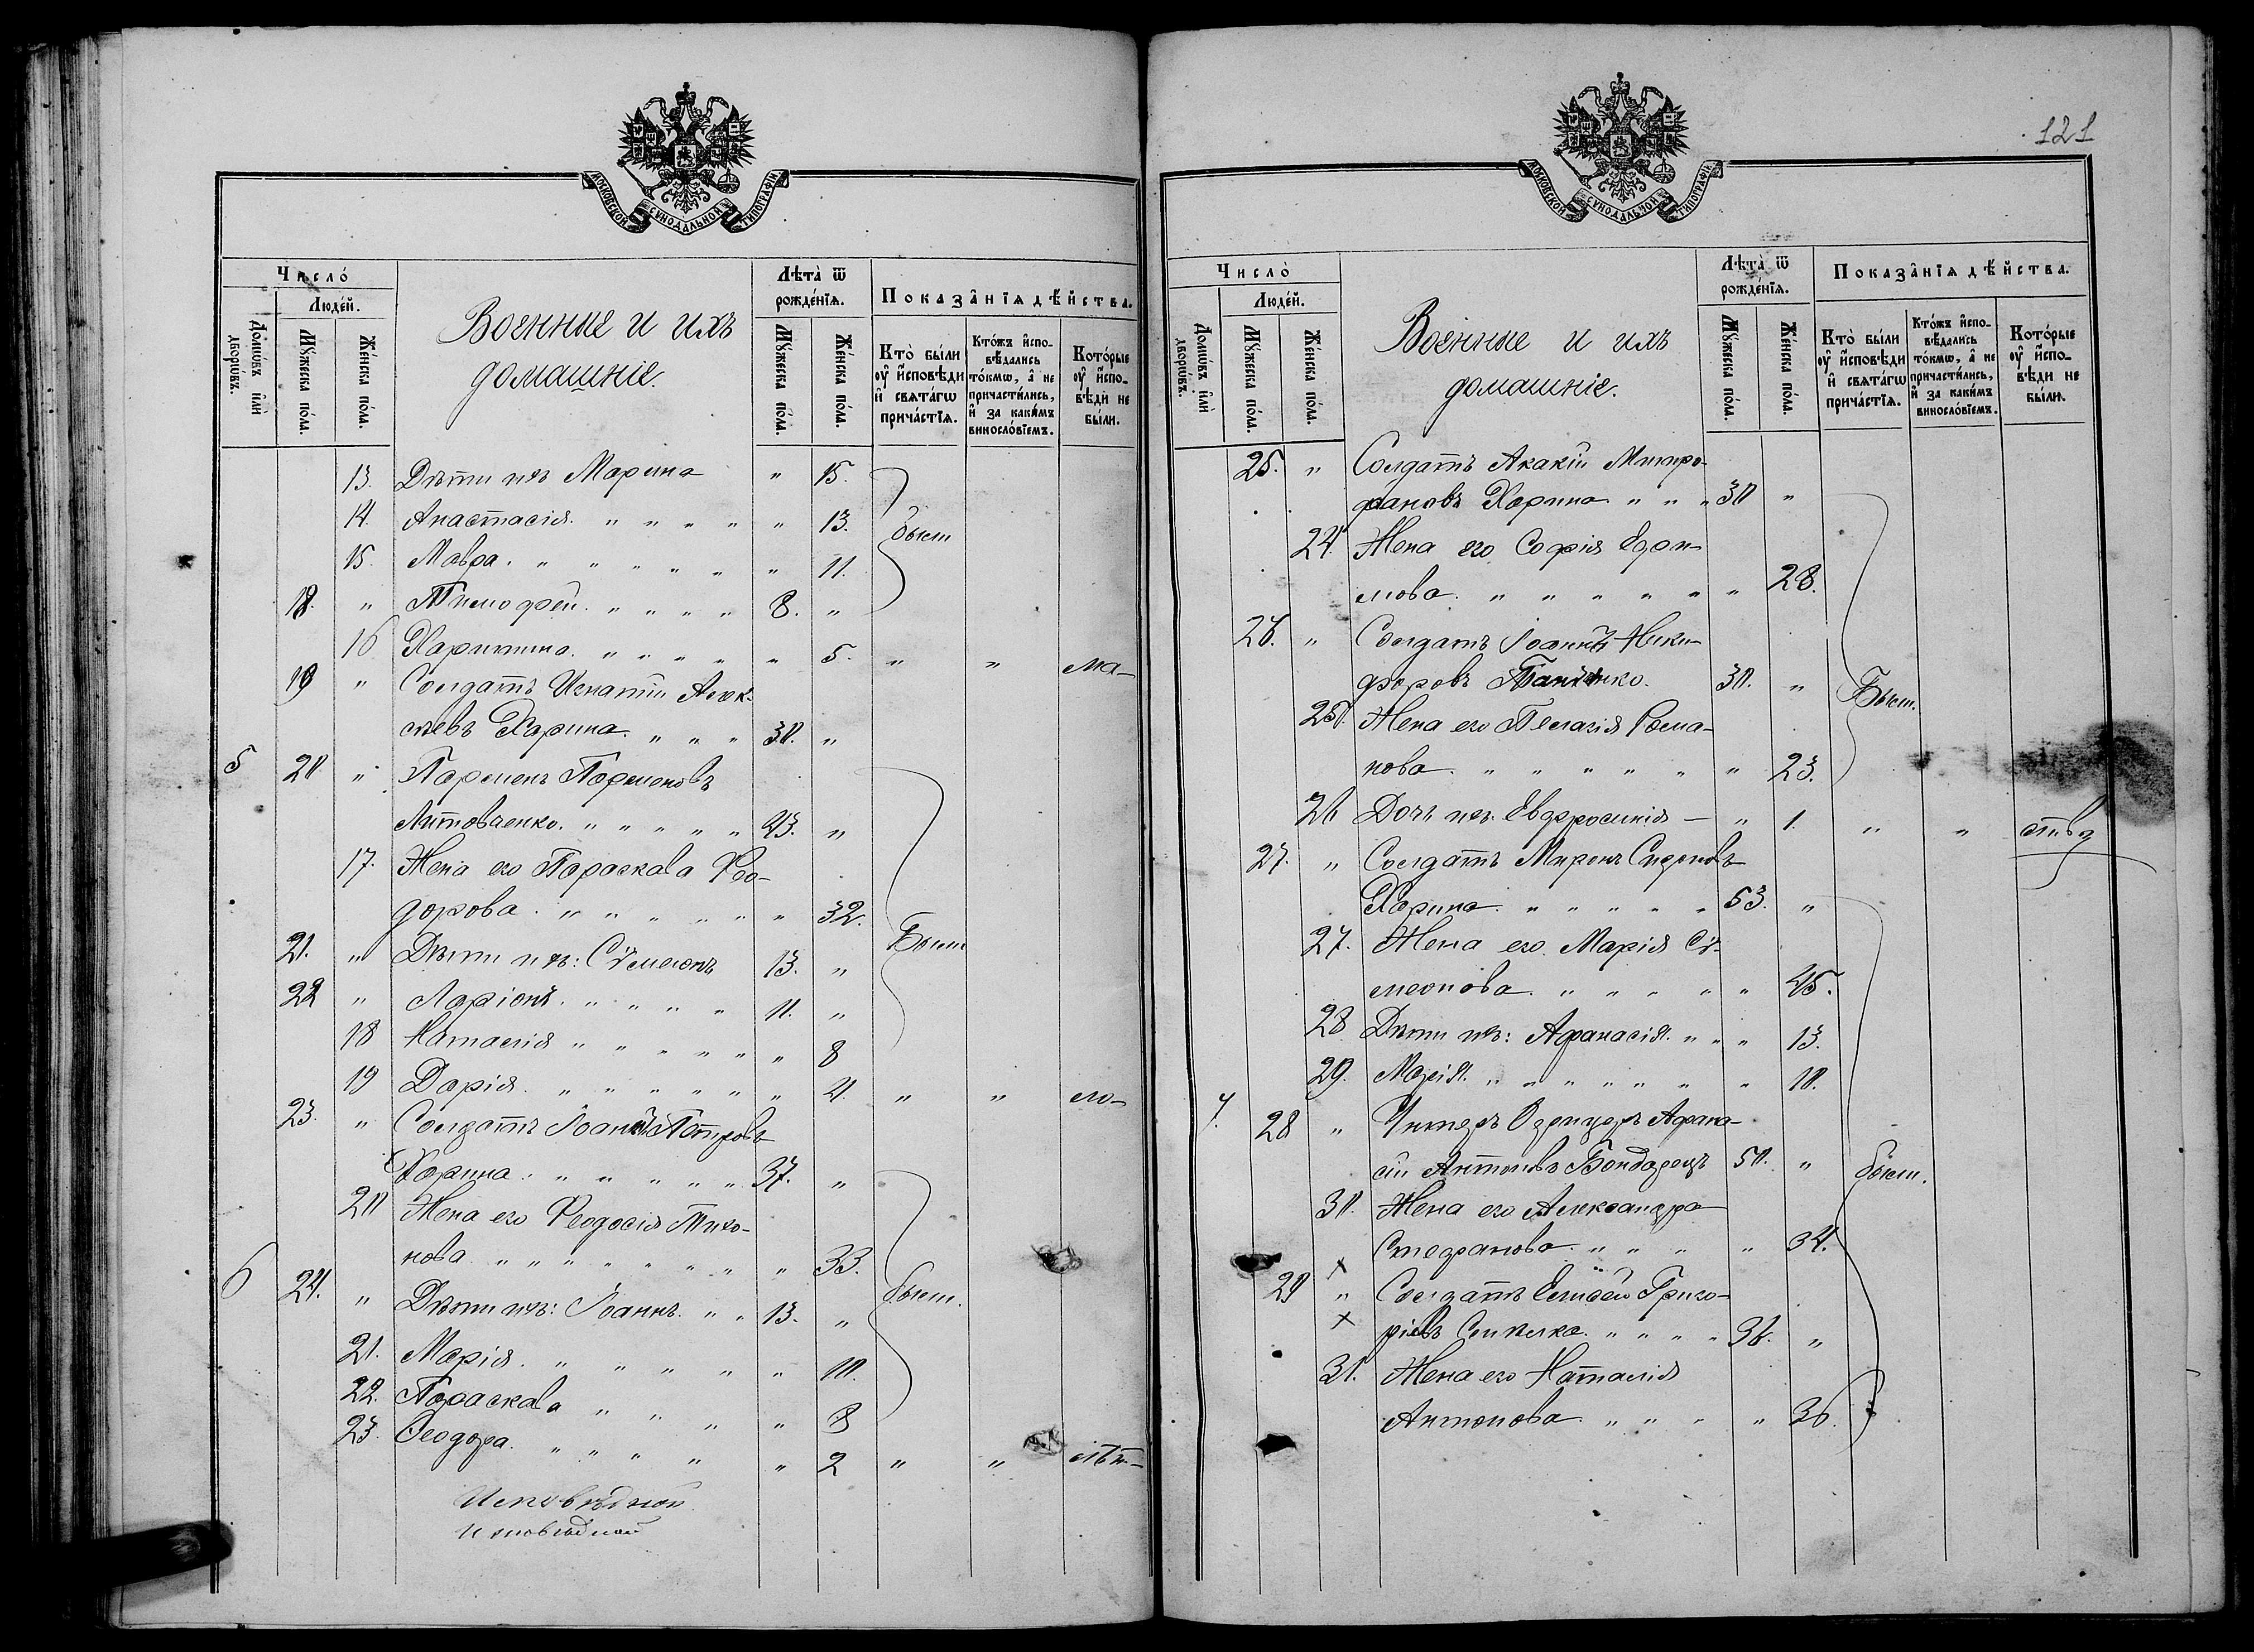 МОСКОВСКОЙ СѴНОДАЛЬНОЙ ТИПОГРАФІИ
Число́
Домѡ́въ и҆лѝ дворѡ́въ.
Люде́й.
Мꙋ́жеска по́ла.
Же́нска по́ла.
Военные и ихъ
домашніе.
Лѣта̀ ѿ
рожде́нїѧ.
Мꙋ́жеска по́ла.
Же́нска по́ла.
Показа̑нїѧ дѣ́йства.
Кто̀ бы́ли оу҆ и҆сповѣди и҆ свѧта́гѡ прича́стїѧ.
Кто́жъ и҆сповѣ́дались то́кмѡ, а҆ не причасти́лись, и҆ за каки́мъ винословїемъ.
Кото́рые оу҆ и҆сповѣди не бы́ли.
13. Дѣти ихъ Марина " 15.
14. Анастасія " " " " " 13. были
15. Мавра " " " " " " 11.
18. " Тимофей " " " " 8. "
16 Харитина " " " " " 5. " " ма-
19 " Солдатъ Игнатій Алек-
сѣевъ Харина " " " 30. "
5 20 " Парменъ Парменовъ
Литовченко " " " " " 43. "
17. Жена его Параскава Фео-
дорова " " " " " " 32.
21. " Дѣти ихъ: Сѵмеонъ 13. " Были
22 " Ларіонъ " " " " 11. "
18 Наталія " " " " " " 8
19 Дарія " " " " " " 4. " " ло-
23. " Солдатъ Іоаннъ Петровъ
Харина " " " " " " 37. "
20 Жена его Феодосія Тихо-
нова " " " " " " " " 33.
6 24. " Дѣти ихъ: Іоаннъ " " 13. " были.
21. Марія " " " " " " 10.
22. Параскава " " " " 8
23. Феодора " " " " " 2 " " лѣт-
Исповѣдной
Исповѣдной
121
МОСКОВСКОЙ СѴНОДАЛЬНОЙ ТИПОГРАФІИ
Число̀
Домѡ́въ и҆лѝ дворѡ́въ.
Люде́й.
Мꙋ́жеска по́ла.
Же́нска по́ла.
Военные и ихъ
домашніе.
Лѣта̀ ѿ
рожде́нїѧ.
Мꙋ́жеска по́ла.
Же́нска по́ла.
Показа̑нїѧ дѣ́йства.
Кто̀ бы́ли оу҆ и҆сповѣди и҆ свѧта́гѡ прича́стїѧ.
Кто́жъ и҆сповѣ́дались то́кмѡ, а҆ не причасти́лись, и҆ за каки́мъ винословїемъ.
Кото́рые оу҆ и҆сповѣди не бы́ли.
25. " Солдатъ Акакій Митро-
фановъ Харина " " " 30 "
24. Жена его Софія Едом-
мова " " " " " " 28.
26. " Солдатъ Іоаннъ Ники-
форовъ Панченко. 30. " Были.
25. Жена его Пелагія Рома-
нова " " " " " " 23.
26 Дочь ихъ Евфросинія — " 1. " " ств
27. " Солдатъ Миронъ Сидоровъ
Харина " " " " " 53. "
27. Жена его Марія Сѵ-
меонова " " " " " 45.
28 Дѣти ихъ: Афанасія " " " 13.
29. Марія " " " " " " 10.
7. 28 " Унтеръ Офицеръ Афана-
сій Антоновъ Бондарецъ 50. " были.
30. Жена его Александра
Стефанова " " " " 34.
29 " Солдатъ Елисей Григо-
ріевъ " " " " 36. "
31. Жена его Наталія
Антонова " " " " 36.